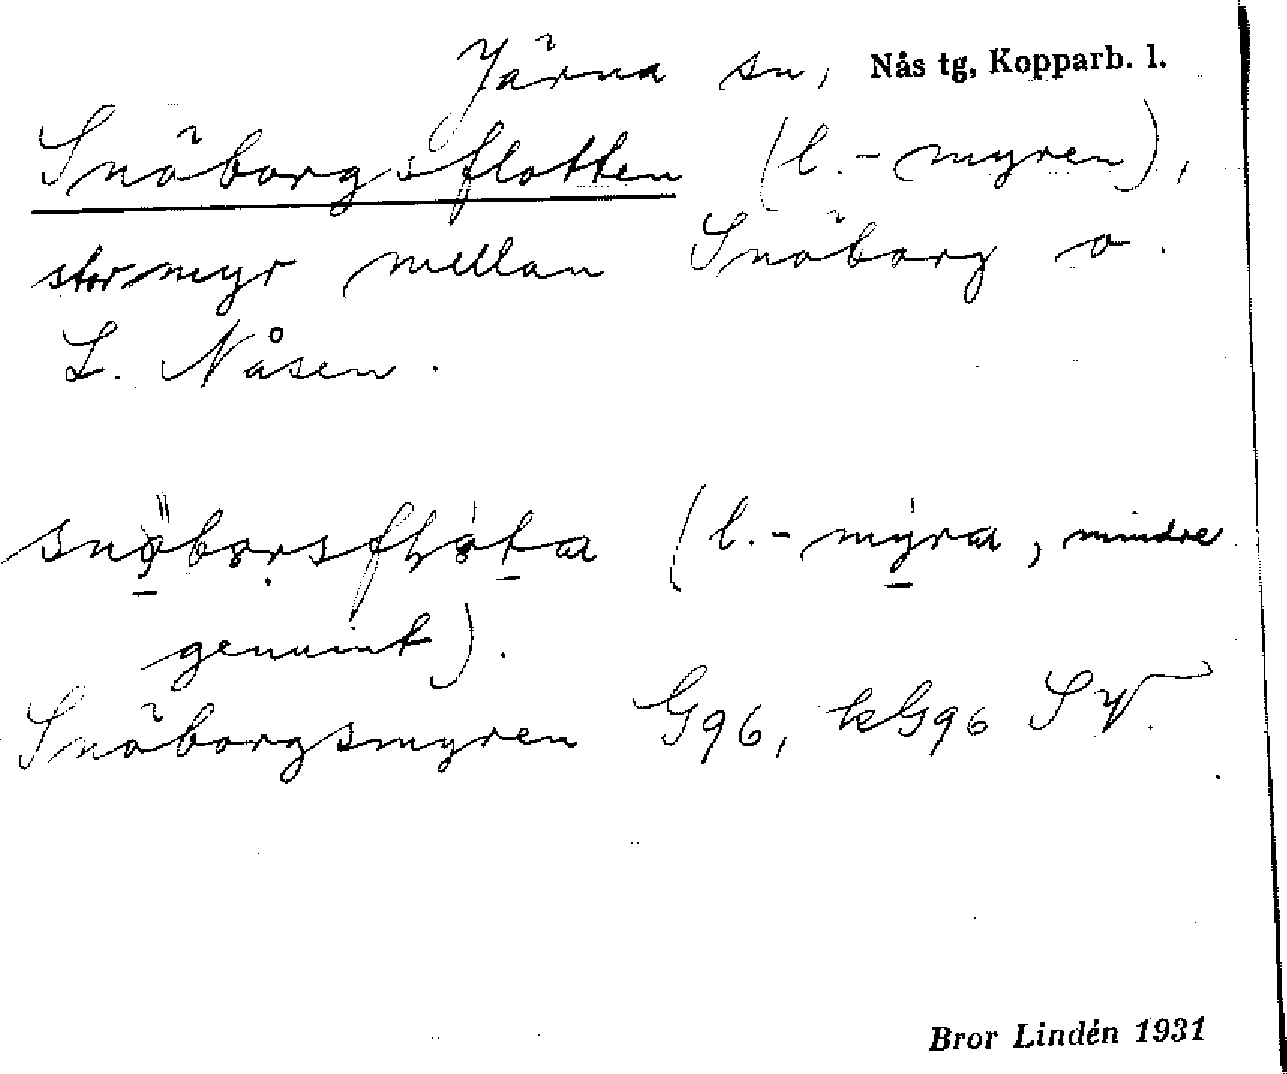 Järna sn, Nås tg, Kopparb. l.
Snöborgsflotten (l. -myren),
stor myr mellan Snöborg o.
L. Nåsen.
(l. -my̱ra, mindre
genuint).
Snöborgsmyren G96, kG96 SV.
Bror Lindén 1931